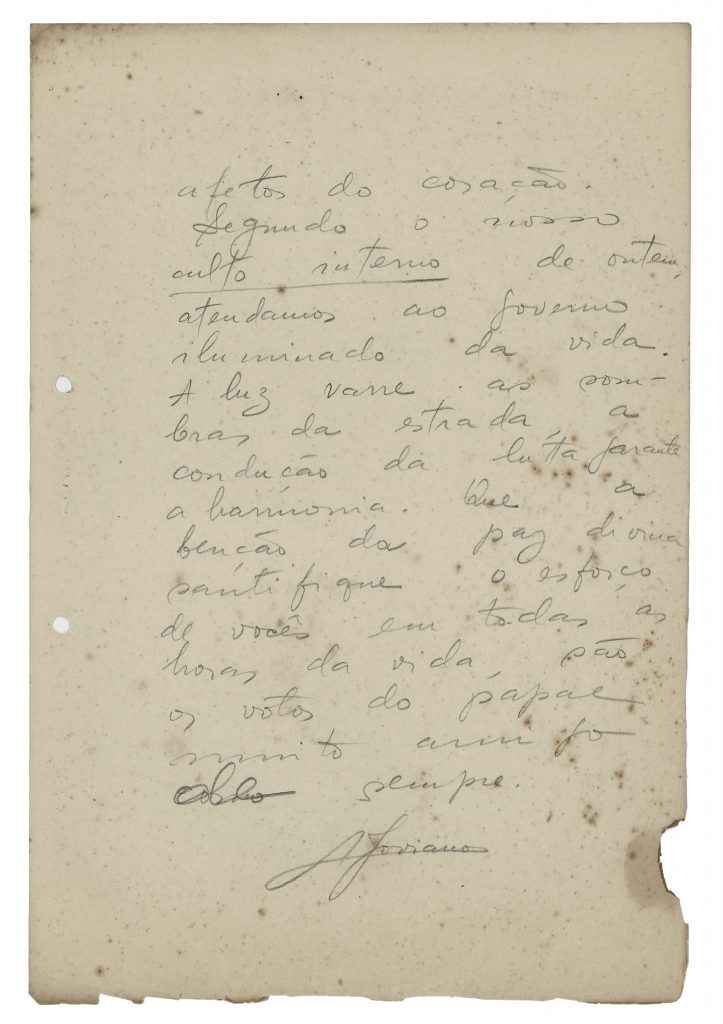 afetos do coração.
Segundo o nosso
culto interno de ontem,
atendamos ao governo
iluminado da vida.
A luz varre as som-
bras da estrada, a
condução da luta garante
a harmonia. Que a
benção da paz divina
santifique o esforço
de vocês em todas as
horas da vida, são
os votos do papae
muito amigo
sempre.
A Joviano